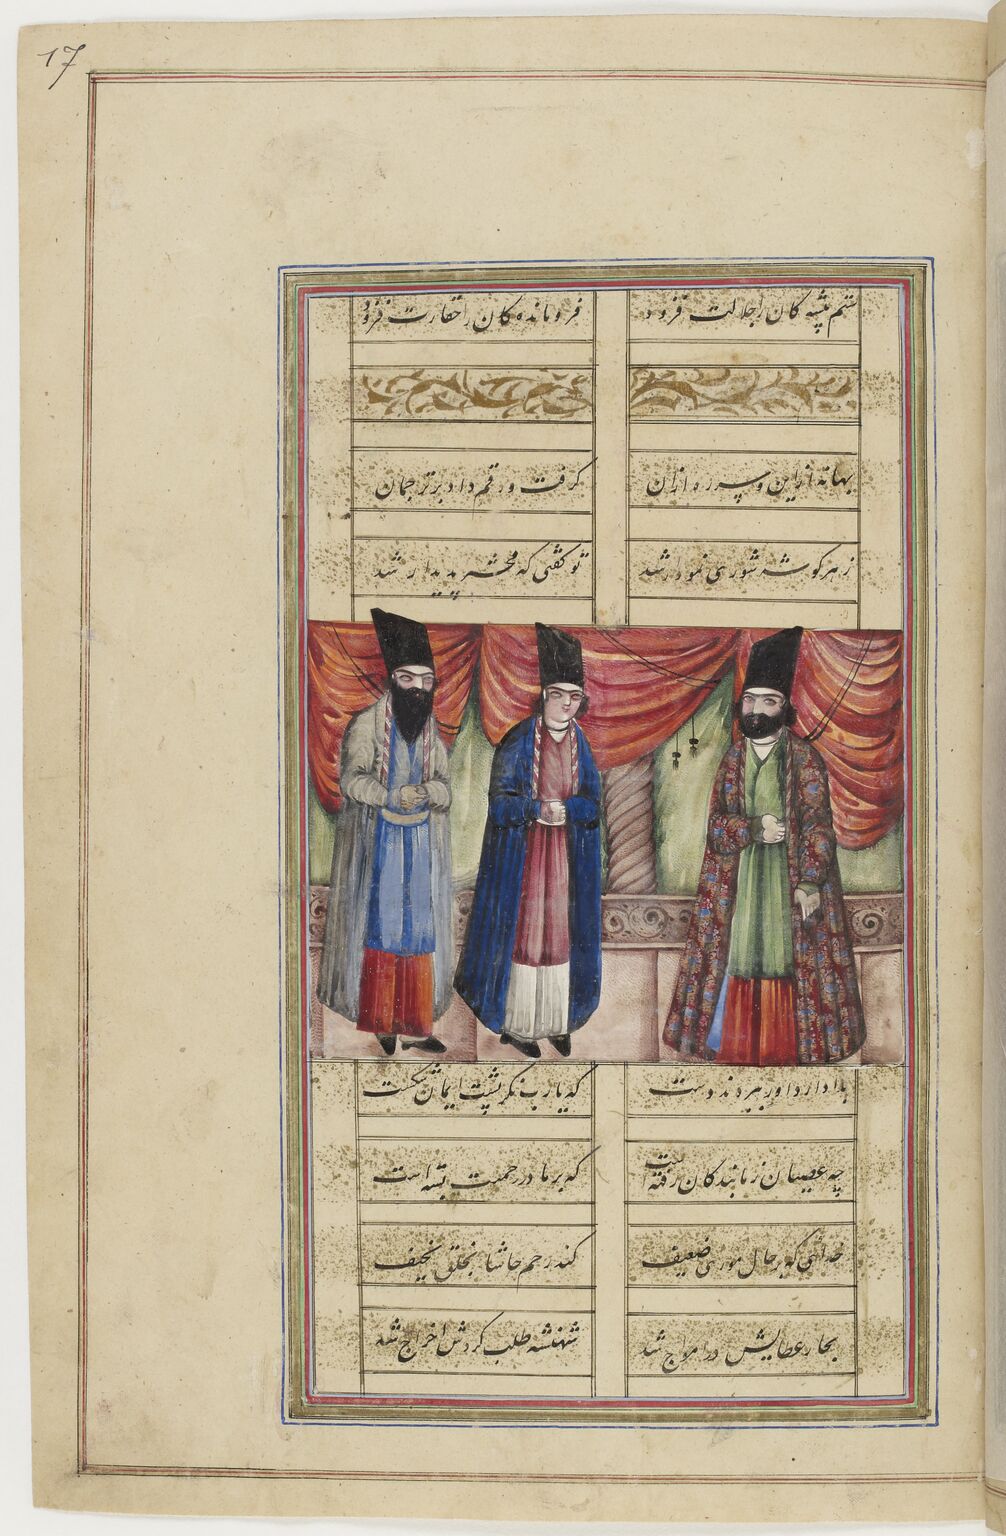 17
ستم پیشه کان را جلالت فزود
فرومانده کان را حقارت فزود
بهانه از این و سپرده از آن
گرفت و رقم داد بر ترجمان
ز هر گوشه شوری نمودار شد
تو گفتی که محشر پدیدار شد
که یا رب نگر پشت ایمان شکست
چه عصیان ز ما بندکان رفته است
که بر ما در رحمتت بسته است
خدائی که بر حال موری ضعیف
کند رحم حاشا بخلق نحیف
بحار عطایش در امواج شد
شهنشه طلب کردش اخراج شد